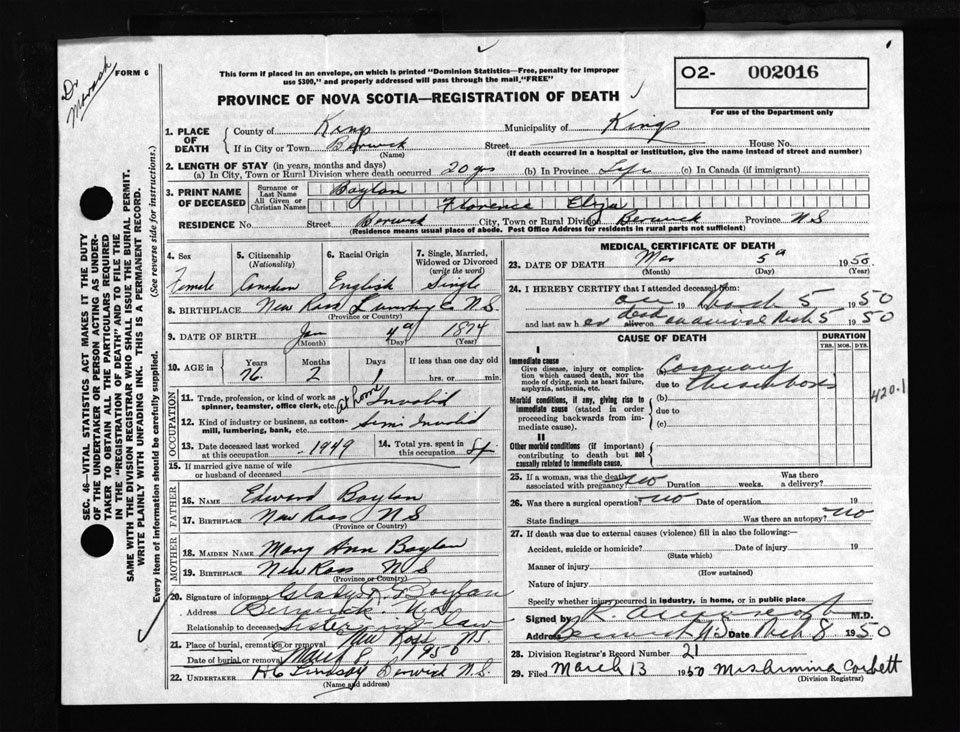 Dr
FORM 6
This form if placed in an envelope, on which is printed "Dominion Statistics—Free, penalty for improper
use $300," and properly addressed will pass through the mail "FREE"
PROVINCE OF NOVA SCOTIA—REGISTRATION OF DEATH
O2- 002016
For use of the Department only
SEC. 46—VITAL STATISTICS ACT MAKES IT THE DUTY
OF THE UNDERTAKER OR PERSON ACTING AS UNDER-
TAKER TO OBTAIN ALL THE PARTICULARS REQUIRED
IN THE "REGISTRATION OF DEATH" AND TO FILE THE
SAME WITH THE DIVISION REGISTRAR WHO SHALL ISSUE THE BURIAL PERMIT.
WRITE PLAINLY WITH UNFADING INK. THIS IS A PERMANENT RECORD.
Every item of information should be carefully supplied. (See reverse side for instructions.)
1. PLACE OF DEATH
County of Kings Municipality of Kings
If in City or Town Berwick Street House No.
(Name) (If death occurred in a hospital or Institution, give the name instead of street and number)
2. LENGTH OF STAY (in years, months and days)
(a) In City, Town or Rural Division where death occurred 20 yrs (b) In Province Life (c) In Canada (if immigrant)
3. PRINT NAME OF DECEASED
Surname or Last Name Boylan
All Given or Christian Names Florence Eliza
RESIDENCE No. Street Berwick City, Town or Rural Division Berwick Province N.S
(Residence means usual place of abode. Post Office Address for residents in rural parts not sufficient)
4. Sex 5. Citizenship (Nationality) 6. Racial Origin 7. Single, Married, Widowed or Divorced (write the word)
Female Canadian English Single
8. BIRTHPLACE New Ross Lunenburg Co N.S.
(Province or Country)
9. DATE OF BIRTH Jan 4 1874
(Month) (Day) (Year)
10. AGE in Years Months Days If less than one day old
76 2 1 hrs. or min.
OCCUPATION
11. Trade, profession, or kind of work as spinner, teamster, office clerk, etc. at home Invalid
12. Kind of industry or business, as cotton-mill, lumbering, bank, etc. Semi Invalid
13. Date deceased last worked at this occupation 1949 14. Total yrs. spent in this occupation
15. If married give name of wife or husband of deceased
FATHER
16. NAME Edward Boylan
17. BIRTHPLACE New Ross N S
(Province or Country)
MOTHER
18. MAIDEN NAME Mary Ann Boylan
19. BIRTHPLACE New Ross N S
(Province or Country)
20. Signature of informant Gladys Boylan
Address Berwick N.S.
Relationship to deceased Sister in law
21. Place of burial, cremation or removal New Ross N.S.
Date of burial or removal March 1950
22. UNDERTAKER Lindsay Berwick N.S.
(Name and address)
MEDICAL CERTIFICATE OF DEATH
23. DATE OF DEATH Mar 5 1950
(Month) (Day) (Year)
24. I HEREBY CERTIFY that I attended deceased from:
on 19 March 5 1950
and last saw her alive on dead on arrival Mch 5 1950
CAUSE OF DEATH DURATION
YRS. MOS. DYS.
I
Immediate cause
Give disease, injury or complication which caused death, NOT the mode of dying, such as heart failure, asphyxia, asthenia, etc.
Coronary
due to thrombosis
Morbid conditions, if any, giving rise to immediate cause (stated in order proceeding backwards from immediate cause).
(b)
due to
(c)
II
Other morbid conditions (if important) contributing to death but not causally related to immediate cause.
420.1
25. If a woman, was the death associated with pregnancy? no Duration weeks. Was there a delivery?
26. Was there a surgical operation? no Date of operation 19
State findings Was there an autopsy? no
27. If death was due to external causes (violence) fill in also the following:—
Accident, suicide or homicide? Date of injury 19
(State which)
Manner of injury
(How sustained)
Nature of injury
Specify whether injury occurred in industry, in home, or in public place
Signed by M.D.
Address Berwick N.S Date Mch 8 1950
28. Division Registrar's Record Number 21
29. Filed March 13 1950 Corbett
(Division Registrar)